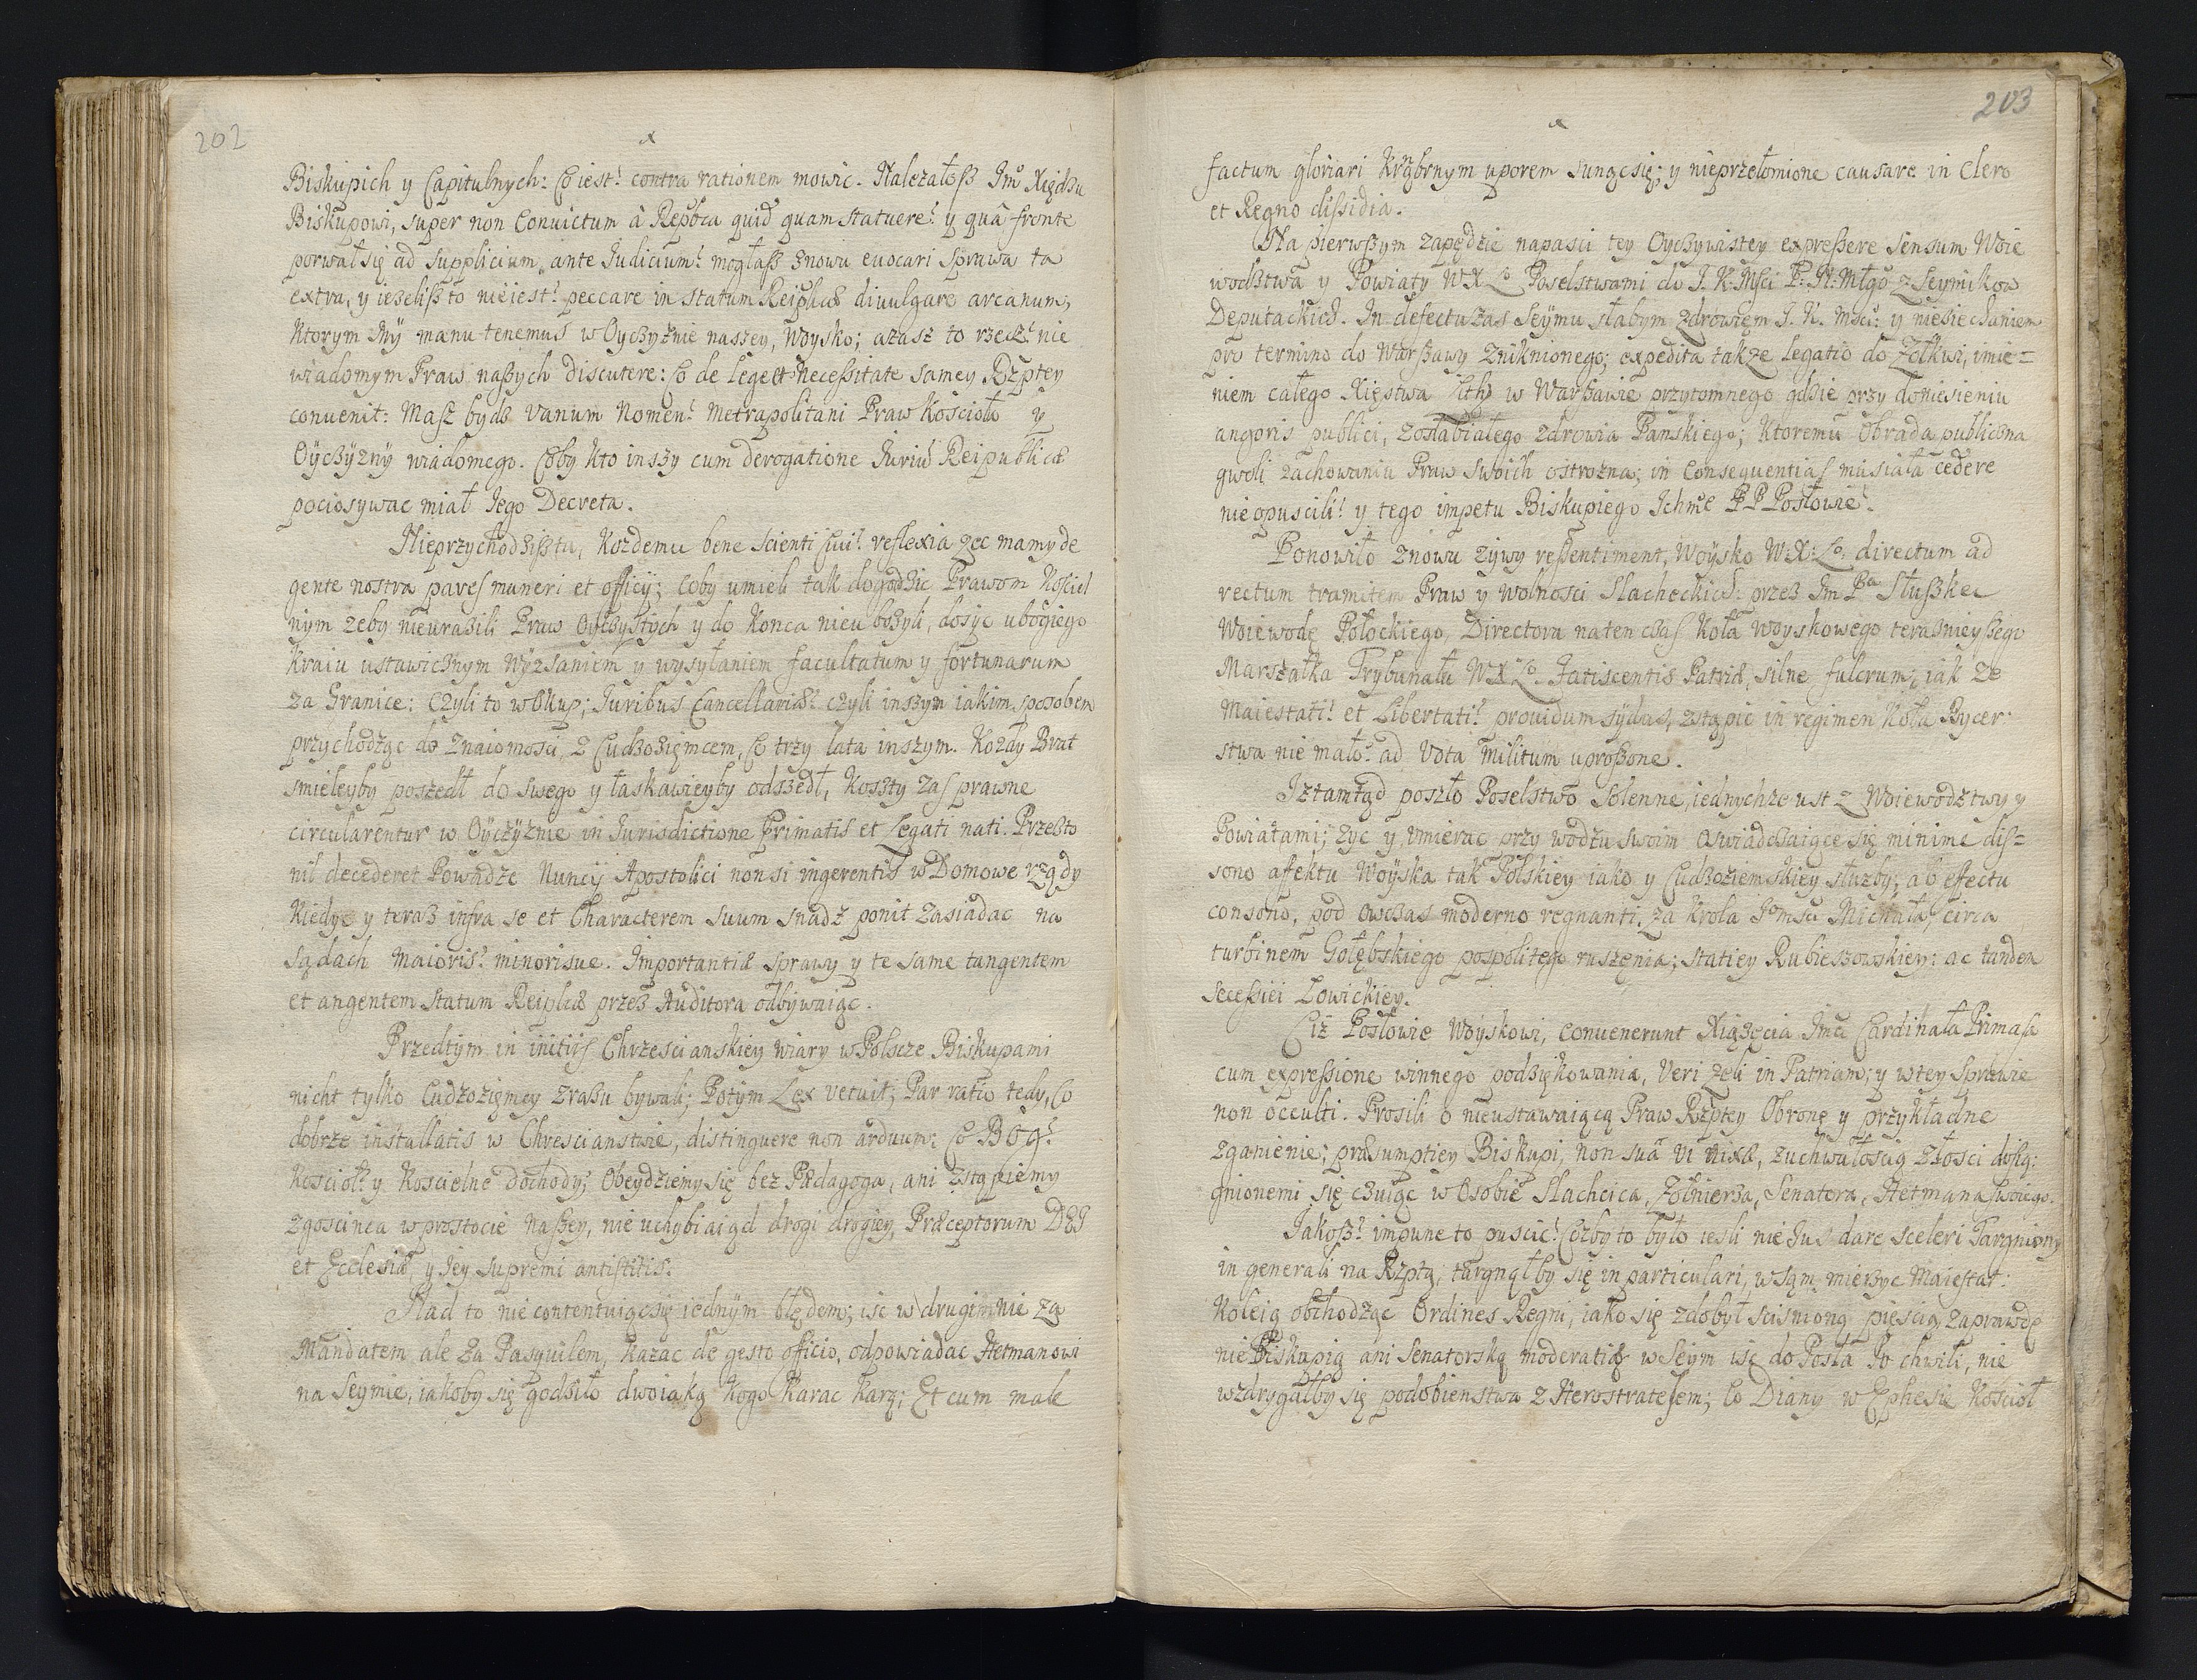 202
x
Biskupich y Capitulnych: Co iest! contra rationem mowic. Nalezałosz Imo Xiędzu
Biskupowi, super non Convictum à Repbca quid quam statuere? y quâ fronte
porwał się ad supplicium, ante Iudicium? mogłasz znowu evocari sprawa ta
extra, y iezelisz to nieiest! peccare in statum Reipcæ divulgare arcanum,
Ktorym My manu tenemus w Oyczyznie naszey, Woysko; azasz to rzecz! nie
wiadomym Praw naszych discutere: Co de lege et necessitate samey Rzptey
convenit: Masz bydz vanum Nomen! Metrapolitani Praw Koscioła y
Oyczyzny wiadomego. Coby kto inszy cum derogatione Iuriu Reipublicæ
pociosywac miał Iego Decreta.
Nieprzychodzisztu, Kozdemu bene scienti sui! reflexia zec mamy de
gente nostra pares muneri et officij; coby umieli tak dogodzic Prawom Kosciel
nym zeby nieurazili Praw Oyczystych y do Konca nieubozyli, dosyc ubogiego
Kraiu ustawicznym wyzsaniem y wysyłaniem facultatum y fortunarum
za Granice: czyli to wOkup; Iuribus Cancellariæ? czyli inszym iakim sposobem
przychodząc do znaiomosci, z Cudzoziemcem, Co trzy lata inszym. Kozdy Brat
smieleyby poszedł do swego y łaskawieyby odszedł, Koszty zas prawne
circularentur w Oyczyznie in Iurisdictione Primatis et Legati nati. Przezto
nil decederet Powadze Nuncij Apostolici non si ingerentis w Domowe rządy
Kiedyc y teraz infra se et Characterem suum snadz ponit zasiadac na
sądach Maioris? minorisue. Importantiæ sprawy y te same tangentem
et angentem statum Reiplcæ przez Auditora odbywaiąc.
Przedtym in initijs Chrzescianskiey wiary w Polszcze Biskupami
nicht tylko Cudzoziemcy zrazu bywali; Potym Lex vetuit; Par ratio tedy, Co
dobrze installatis w Chrescianstwie, distinguere non arduum: Co Bog?
Kosciol? y Koscielne dochody; Obeydziemy się bez Pædagoga, ani zstąpiemy
zgoscinca w prostocie naszey, nie uchybiaiącd drogi drogiey, Præceptorum DEI
et Ecclesiæ, y Iey supremi antistitis.
Nad to nie contentuiącsię iednym błędem; isc w drugim nie za
Mandatem ale za Pasquilem, kazac de gesto officio, odpowiadac Hetmanowi
na Seymie, iakoby się godziło dwoiaką kogo karac karą; Et cum male
203
x
factum gloriari Krąbrnym uporem sunącsię; y nieprzełomione causare in Clero
et Regno dissidia.
Na pierwszym zapędzie napasci tey Oyczywistey expressere sensum Woie
wodztwa y Powiaty WXLo Poselstwami do J.K.Msci P:N:Młgo z Seymikow
Deputackich. In defectu zas Seymu słabym zdrowiem J.K. Msci: y nieziechaniem
pro termino do Warszawy zniknionego; expedita takze legatio do Zołkwi, imie=
niem całego Xięstwa Litho w Warszawie przytomnego gdzie przy doniesieniu
angoris publici, zosłabiałego zdrowia Panskiego; Ktoremu Obrada publiczna
gwoli zachowaniu Praw swoich ostrozna; in consequentias musiała cedere
nieopuscili! y tego impetu Biskupiego Ichmc PP Posłowie!
Ponowiło znowu zywy ressentiment, Woysko W:X:Lo: directum ad
rectum tramitem Praw y wolnosci Slacheckich: przez Im Pa Słuszkę
Woiewodę Połockiego, Directora naten czas Koła Woyskowego teraznieyszego
Marszałka Trybunału WXLo. Fatiscentis Patriæ, silne fulcrum; iak ze
Maiestati! et Libertati! providum sydus, zstąpic in regimen Koła Rycer:
stwa nie mało! ad vota Militum uproszone.
Iztamtąd poszło Poselstwo Solenne, iednychze ust z Woiewodztwy y
Powiatami; zyc y umierac przy wodzu swoim oswiadczaiące się minime dis=
sono affektu Woyska tak Polskiey iako y Cudzoziemskiey słuzby; ab effectu
consono, pod owczas moderno regnanti, za Krola Iomsci Michała, circa
turbinem Gołębskiego pospolitego ruszenia; statiey Rubieszowskiey: ac tanden
secessiei Łowickiey.
Ciz Posłowie Woyskowi, convenerunt Xiązęcia Imci Cardinała Primasa
cum expressione winnego podziękowania, Veri Zeli in Patriam; y w tey Sprawie
non occulti. Prosili o nieustawaiącą Praw Rzptey Obronę y przykładne
zganienie; præsumptiey Biskupi, non suâ vi nixæ, zuchwałoscią złosci dosią:
gnionemi się czuiąc w Osobie Slachcica, Zołnierza, Senatora, Hetmana swoiego.
Iakosz? impune to puscic! Cozby to było iesli nie Ius dare sceleri Targniony
in generali na Rzptą; targnąłby się in particulari, w sąm, mierzyc Maiestat:
Koleią obchodząc Ordines Regni, iako się zdobył scisnioną pięscią, zaprawdę
nie Biskupią ani Senatorską moderatią w Seym isc do Posła Po chwili, nie
wzdrygałby się podobienstwa z Herostratesem; Co Diany w Ephesie Kosciol